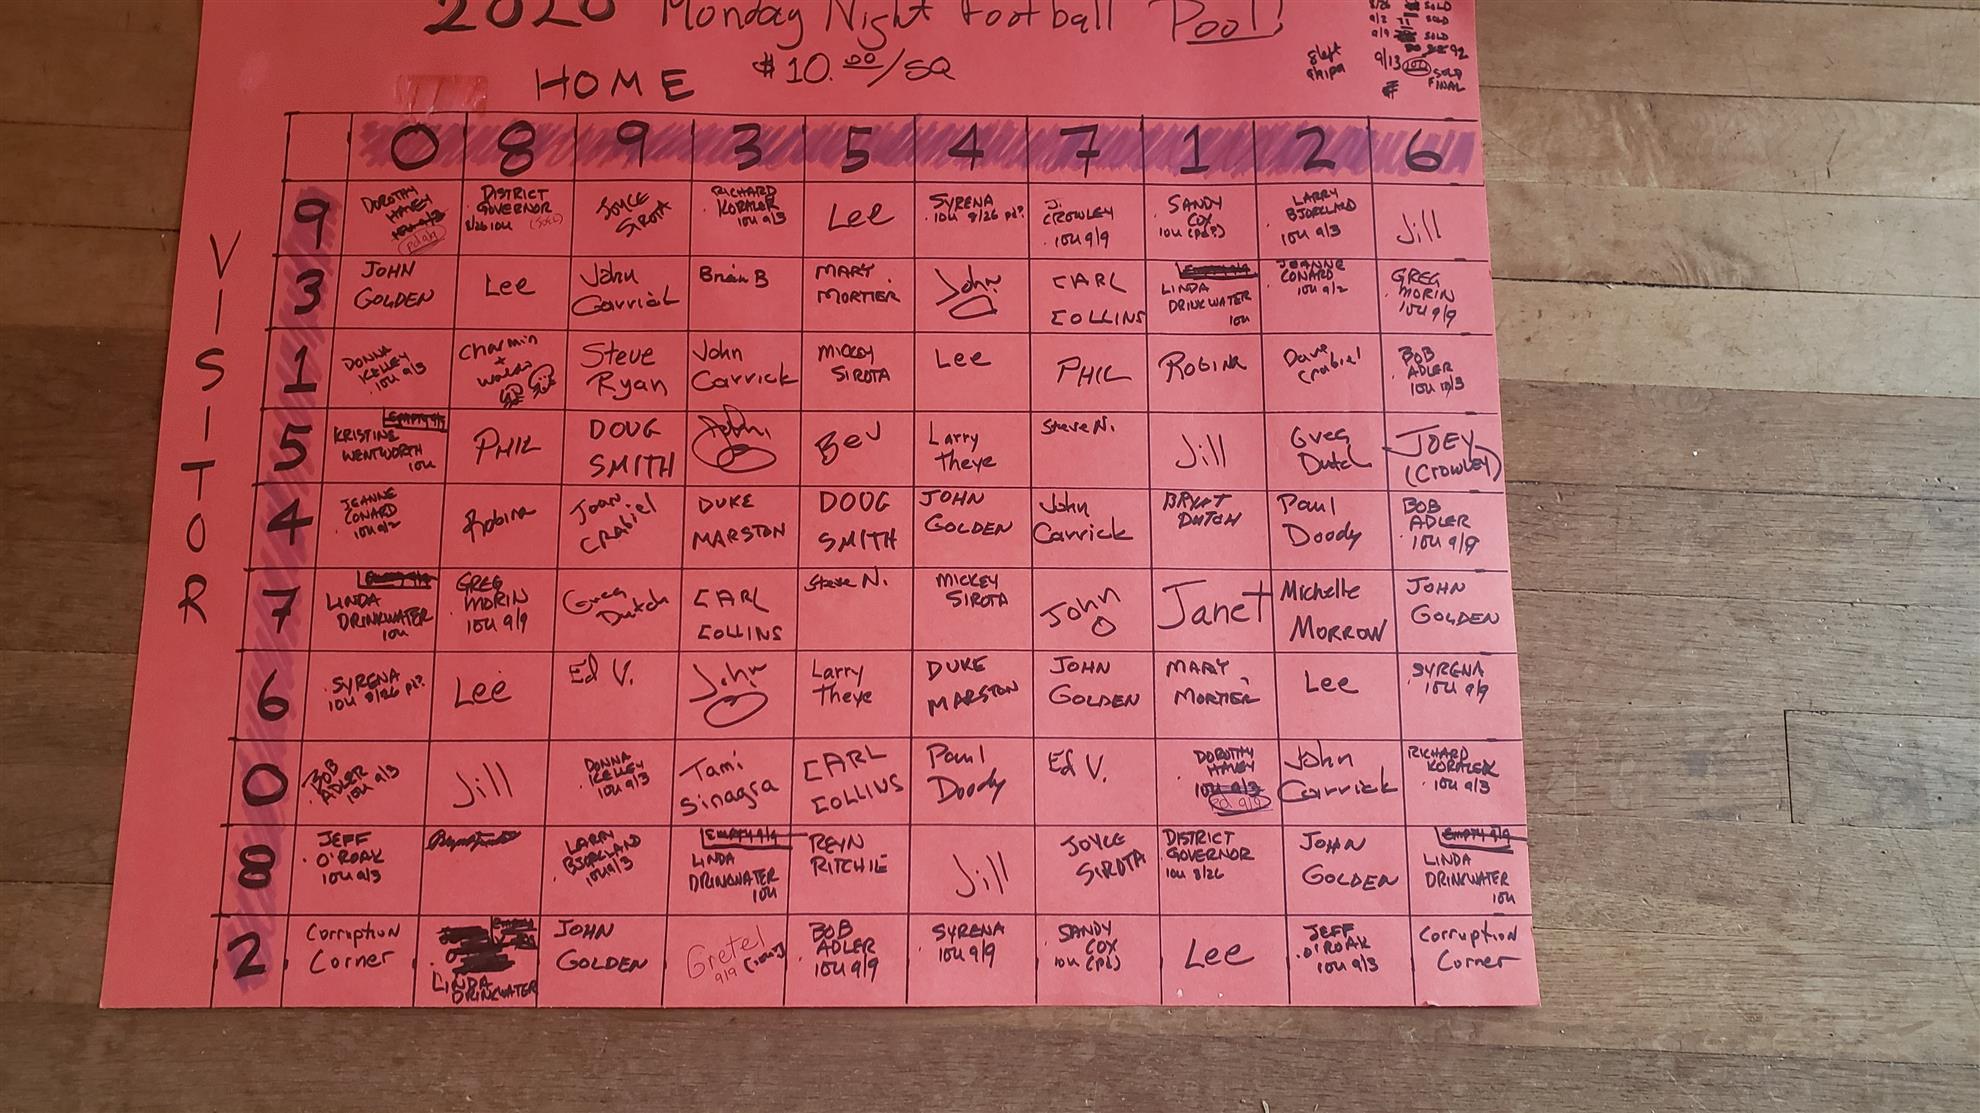 2020 Monday Night Football Pool!
HOME $10.00/SQ
SOLD
9/2 11 SOLD
9/9 SOLD
92
9/13 100 SOLD
FINAL
VISITOR
0 8 9 3 5 4 7 1 2 6
9
DOROTHY
HANEY
pd 9/9
DISTRICT
GOVERNOR
8/26 IOU
JOYCE
SIROTA
RICHARD
KORALEK
IOU 9/3
Lee
SYRENA
IOU 8/26 pd?
J.
CROWLEY
IOU 9/9
SANDY
COX
IOU (pd?)
LARRY
BJORKLAND
IOU 9/3
Jill
3
JOHN
GOLDEN
Lee
John
Carrick
Brian B
MARY
MORTIER
John
CARL
COLLINS
LINDA
DRINKWATER
IOU
JEANNE
CONARD
IOU 9/2
GREG
MORIN
IOU 9/9
1
DONNA
KELLEY
IOU 9/3
Charmin
+
Waldo
Steve
Ryan
John
Carrick
MICKEY
SIROTA
Lee
PHIL
ROBINA
Dave
Crabiel
BOB
ADLER
IOU 9/3
5
EMPTY 9/9
KRISTINE
WENTWORTH
IOU
PHIL
DOUG
SMITH
John
Bev
Larry
Theye
Steve N.
Jill
Greg
Dutch
JOEY
(CROWLEY)
4
JEANNE
CONARD
IOU 9/2
Robina
Joan
CRABIEL
DUKE
MARSTON
DOUG
SMITH
JOHN
GOLDEN
John
Carrick
BRYNT
DUTCH
Paul
Doody
BOB
ADLER
IOU 9/9
7
EMPTY 9/9
LINDA
DRINKWATER
IOU
GREG
MORIN
IOU 9/9
Greg
Dutch
CARL
COLLINS
Steve N.
MICKEY
SIROTA
John
Janet
Michelle
MORROW
JOHN
GOLDEN
6
SYRENA
IOU 8/26 pd?
Lee
Ed V.
John
Larry
Theye
DUKE
MARSTON
JOHN
GOLDEN
MARY
MORTIER
Lee
SYRENA
IOU 9/9
0
BOB
ADLER
IOU 9/3
Jill
DONNA
KELLEY
IOU 9/3
Tami
Sinagra
CARL
COLLINS
Paul
Doody
Ed V.
DOROTHY
HANEY
IOU 9/3
pd 9/9
John
Carrick
RICHARD
KORALEK
IOU 9/3
8
JEFF
O'ROAK
IOU 9/3
LARRY
BJORKLAND
IOU 9/3
EMPTY 9/9
LINDA
DRINKWATER
IOU
REYN
RITCHIE
Jill
JOYCE
SIROTA
DISTRICT
GOVERNOR
IOU 8/26
JOHN
GOLDEN
EMPTY 9/9
LINDA
DRINKWATER
IOU
2
Corruption
Corner
EMPTY
LINDA
DRINKWATER
JOHN
GOLDEN
Gretel
9/9 (IOU)
BOB
ADLER
IOU 9/9
SYRENA
IOU 9/9
SANDY
COX
IOU (pd)
Lee
JEFF
O'ROAK
IOU 9/3
Corruption
Corner